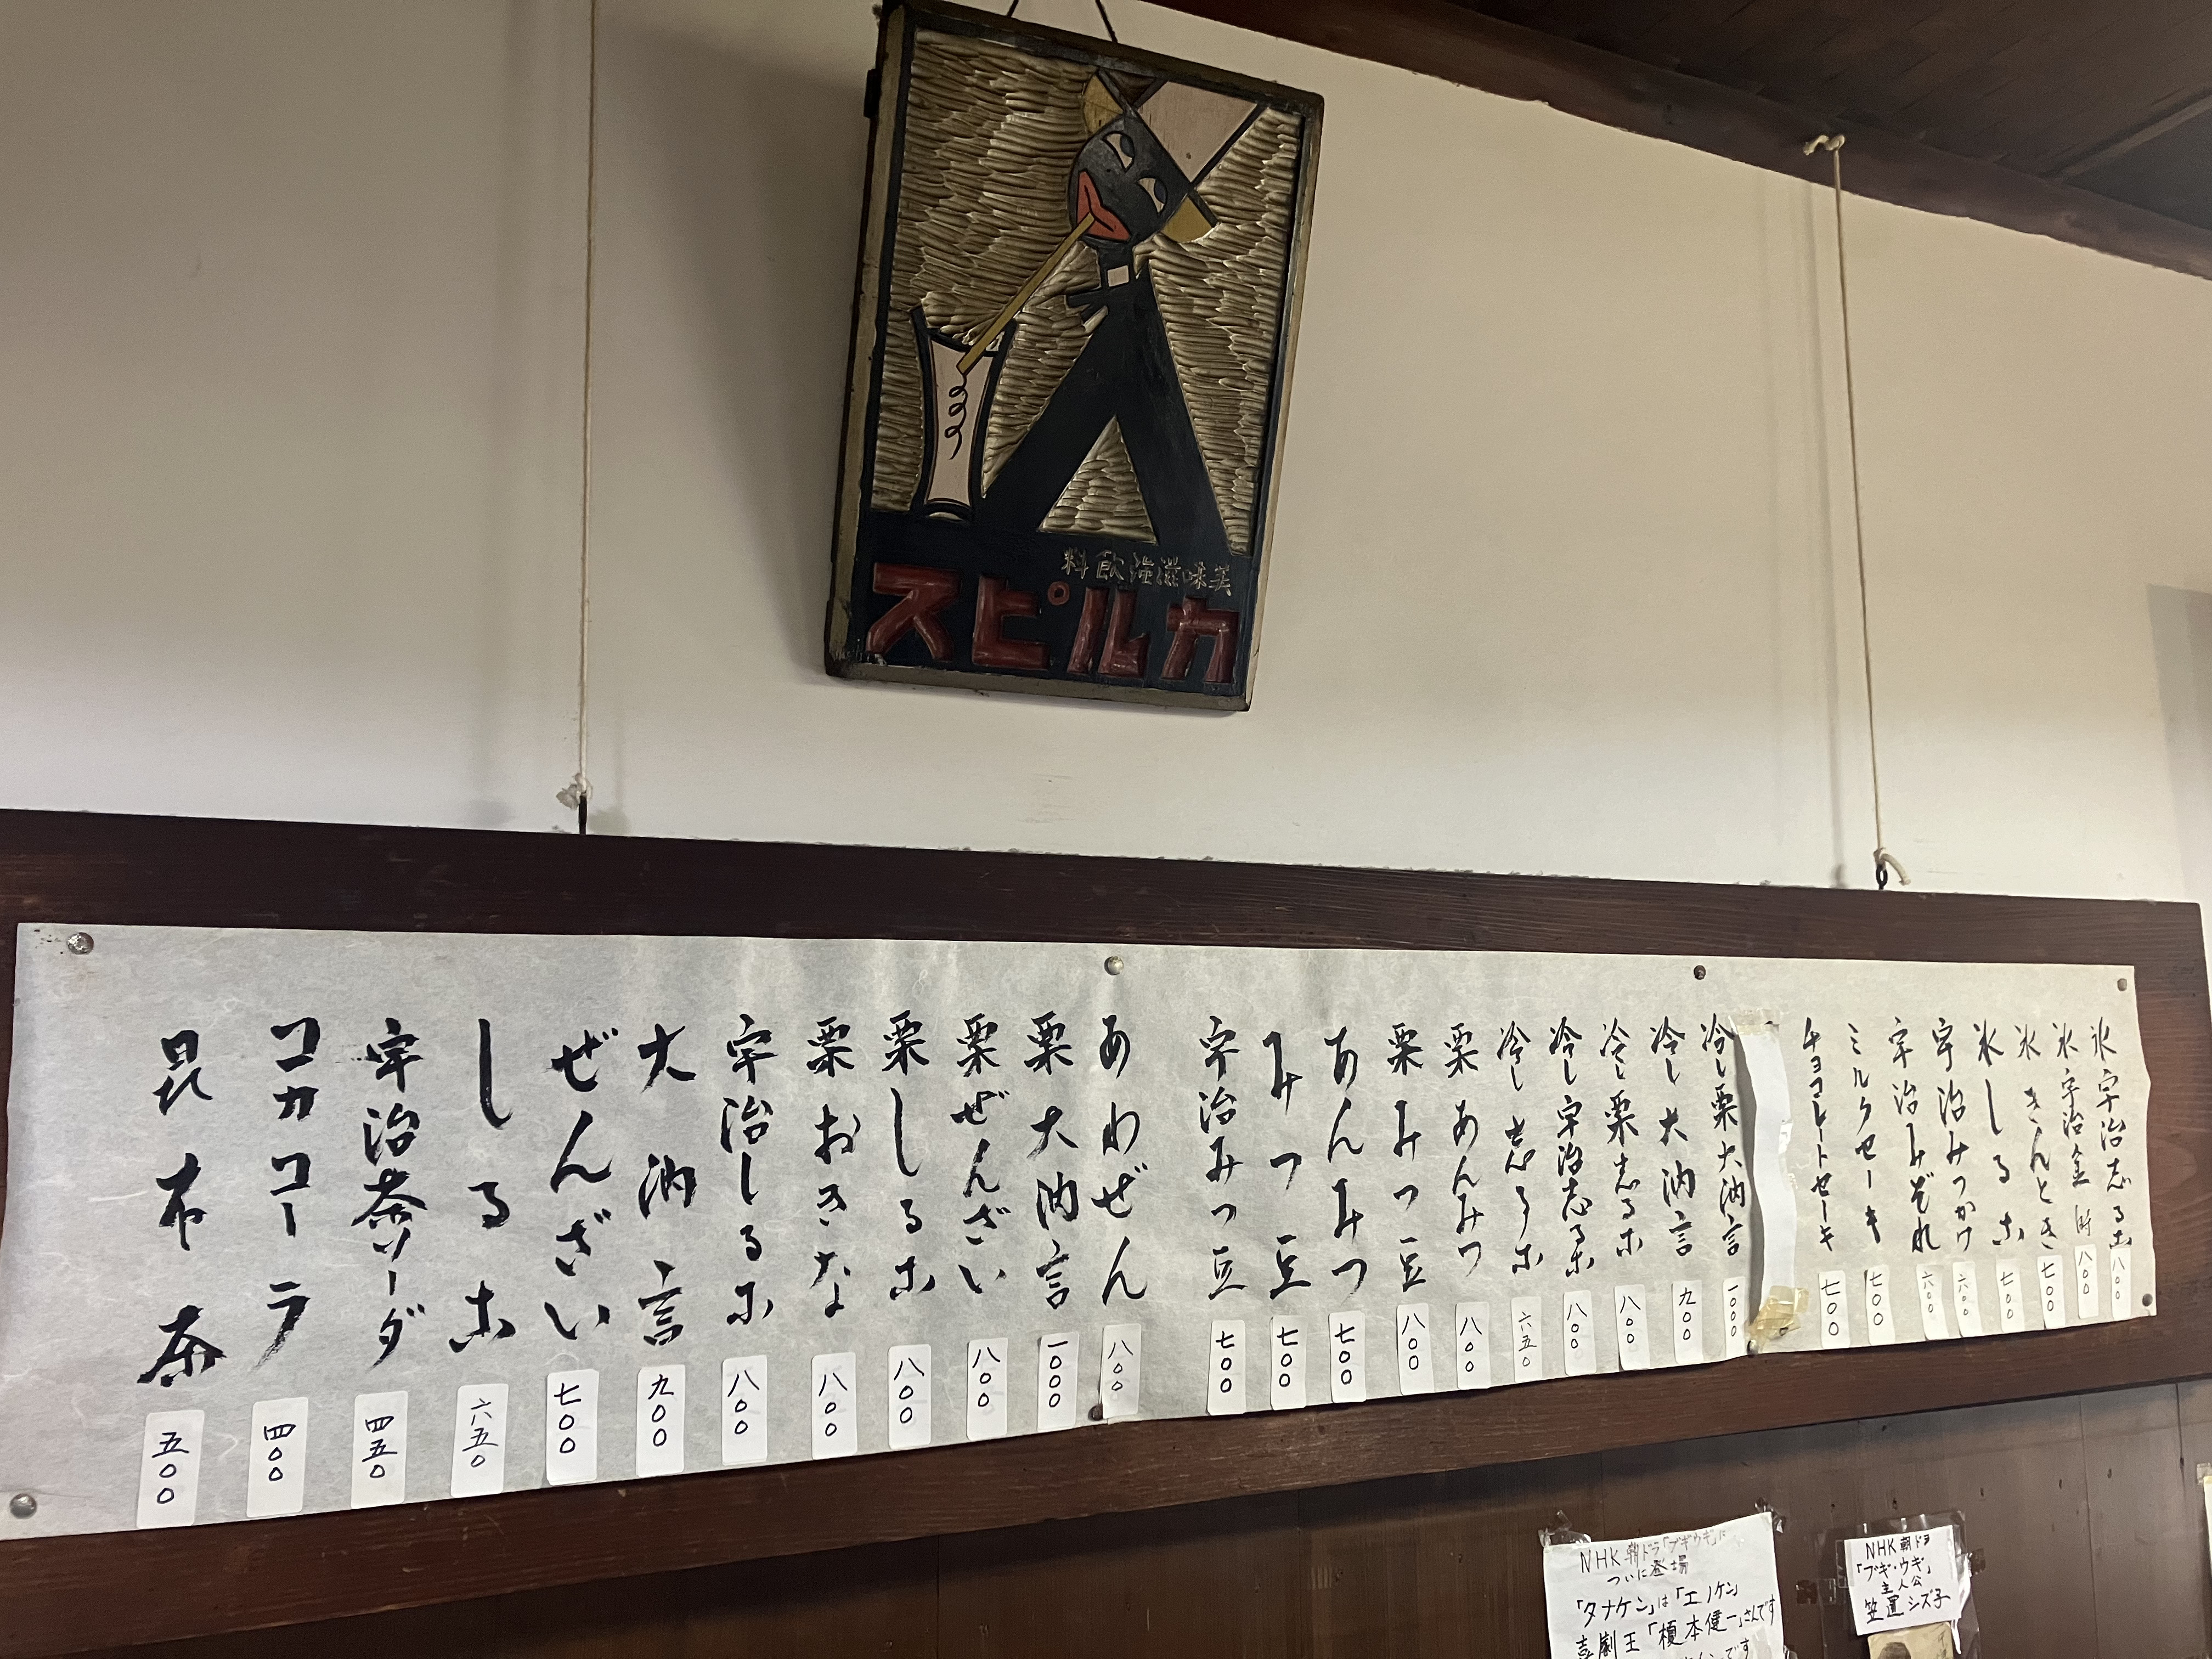 美味滋強飲料
カルピス
氷宇治志るこ
八〇〇
氷宇治金時
八〇〇
氷きんとき
七〇〇
氷しるこ
七〇〇
宇治みつかけ
六〇〇
宇治みぞれ
六〇〇
ミルクセーキ
七〇〇
チョコレートセーキ
七〇〇
冷し栗大納言
一〇〇〇
冷し大納言
九〇〇
冷し栗志るこ
八〇〇
冷し宇治志るこ
八〇〇
冷し志るこ
六五〇
栗あんみつ
八〇〇
栗みつ豆
八〇〇
あんみつ
七〇〇
みつ豆
七〇〇
宇治みつ豆
七〇〇
あわぜん
八〇〇
栗大納言
一〇〇〇
栗ぜんざい
八〇〇
栗しるこ
八〇〇
栗おきな
八〇〇
宇治しるこ
八〇〇
大納言
九〇〇
ぜんざい
七〇〇
しるこ
六五〇
宇治茶ソーダ
四五〇
コカコーラ
四〇〇
昆布茶
五〇〇
NHK朝ドラ「ブギウギ」に
ついに登場
「タナケン」は「エノケン」
喜劇王「榎本健一」さんです
NHK朝ドラ
「ブギ・ウギ」
主人公
笠置シズ子